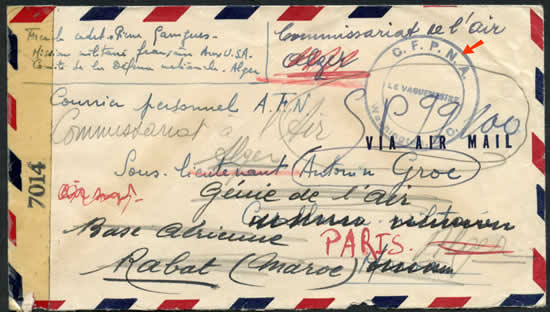 French cadet
Mission militaire française Aux U.S.A.
Comité de la Défense nationale. Alger
Commissariat de l'air
Alger
C.F.P.N.A.
LE VAGUEMESTRE
Washington D.C.
Courrier personnel A.F.N
SP 99100
Commissariat à l'Air
Alger
VIA AIR MAIL
7014
Sous-lieutenant Antonin Groc
Génie de l'air
Base Aérienne
PARIS.
Rabat (Maroc)